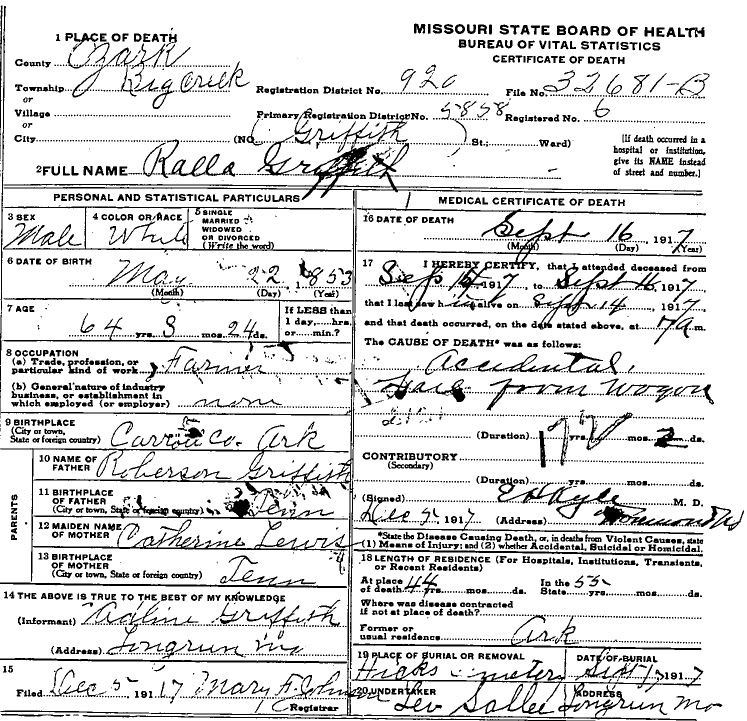 MISSOURI STATE BOARD OF HEALTH
BUREAU OF VITAL STATISTICS
CERTIFICATE OF DEATH
1 PLACE OF DEATH
County Ozark
Township Big Creek Registration District No. 920 File No. 32681-B
or
Village Primary Registration District No. 5858 Registered No. 6
or
City (NO. Griffith ) St.; Ward)
[If death occurred in a hospital or institution, give its NAME instead of street and number.]
2 FULL NAME Ralla Griffith
PERSONAL AND STATISTICAL PARTICULARS
3 SEX Male
4 COLOR OR RACE White
5 SINGLE MARRIED WIDOWED OR DIVORCED (Write the word)
6 DATE OF BIRTH May 22 1853
(Month) (Day) (Year)
7 AGE 64 yrs. 3 mos. 24 ds.
If LESS than 1 day, hrs. or min.?
8 OCCUPATION
(a) Trade, profession, or particular kind of work Farmer
(b) General nature of industry business, or establishment in which employed (or employer) none
9 BIRTHPLACE
(City or town, State or foreign country) Carroll co. Ark
PARENTS
10 NAME OF FATHER Roberson Griffith
11 BIRTHPLACE OF FATHER
(City or town, State or foreign country) Tenn
12 MAIDEN NAME OF MOTHER Catherine Lewis
13 BIRTHPLACE OF MOTHER
(City or town, State or foreign country) Tenn
14 THE ABOVE IS TRUE TO THE BEST OF MY KNOWLEDGE
(Informant) Adline Griffith
(Address) Longrun Mo
15
Filed Dec 5 191 17 Mary A. Johnson
Registrar
MEDICAL CERTIFICATE OF DEATH
16 DATE OF DEATH Sept 16, 1917
(Month) (Day) (Year)
17 I HEREBY CERTIFY, that I attended deceased from
Sep 15, 1917, to Sept 16, 1917
that I last saw him alive on Sept 14, 1917,
and that death occurred, on the date stated above, at 7 a m.
The CAUSE OF DEATH* was as follows:
Accidental,
from Wagon
(Duration) yrs. mos. 2 ds.
CONTRIBUTORY
(Secondary)
(Duration) yrs. mos. ds.
(Signed) M. D.
Dec 5, 1917 (Address)
*State the Disease Causing Death, or, in deaths from Violent Causes, state
(1) Means of Injury; and (2) whether Accidental, Suicidal or Homicidal.
18 LENGTH OF RESIDENCE (For Hospitals, Institutions, Transients, or Recent Residents)
At place of death 44 yrs. mos. ds. In the State 55 yrs. mos. ds.
Where was disease contracted
if not at place of death?
Former or
usual residence Ark
19 PLACE OF BURIAL OR REMOVAL Hicks
DATE OF BURIAL Sept 17 1917
20 UNDERTAKER Lev Sallee
ADDRESS Longrun Mo